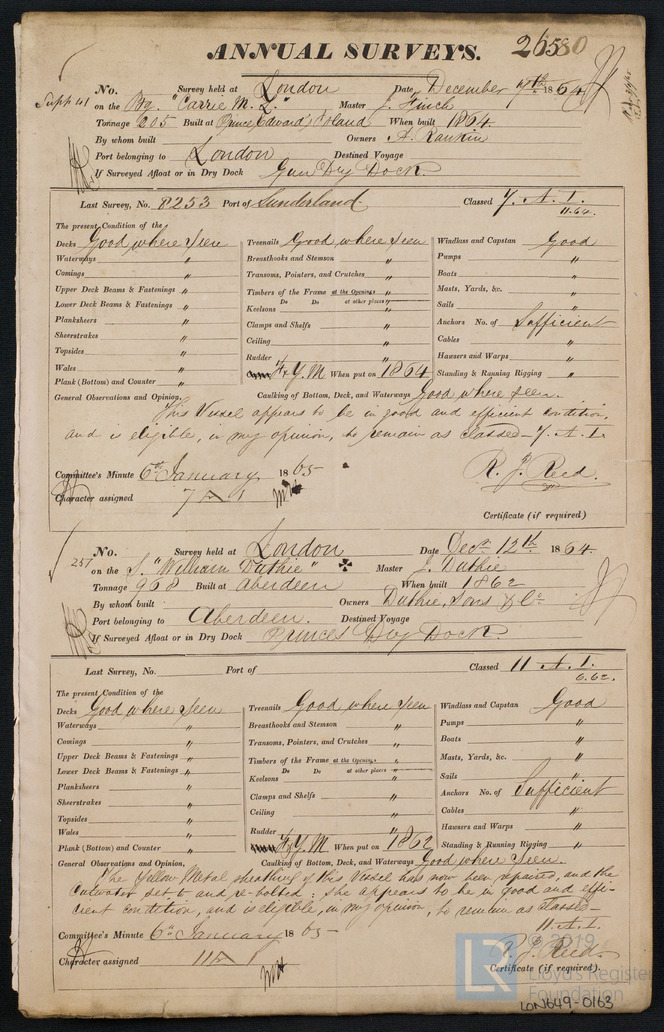 ANNUAL SURVEYS. 26580
No. Survey held at London Date December 7th 1864
Supp 41 on the Bg. "Carrie M. Z." Master J. Finch
Tonnage 205 Built at Prince Edward's Island When built 1864.
By whom built Owners A. Rankin
Port belonging to London Destined Voyage
If Surveyed Afloat or in Dry Dock Gun Dry Dock.
Last Survey, No. 8253 Port of Sunderland. Classed 7. A. 1.
11.64.
The present Condition of the
Decks Good where Seen
Waterways "
Comings "
Upper Deck Beams & Fastenings "
Lower Deck Beams & Fastenings "
Planksheers "
Sheerstrakes "
Topsides "
Wales "
Plank (Bottom) and Counter "
Treenails Good where Seen
Breasthooks and Stemson "
Transoms, Pointers, and Crutches "
Timbers of the Frame at the Openings "
Do Do at other places "
Keelsons "
Clamps and Shelfs "
Ceiling "
Rudder "
Y.M When put on 1864
Windlass and Capstan Good
Pumps "
Boats "
Masts, Yards, &c. "
Sails "
Anchors No. of Sufficient
Cables "
Hawsers and Warps "
Standing & Running Rigging "
General Observations and Opinion, Caulking of Bottom, Deck, and Waterways Good where seen.
This Vessel appears to be in good and efficient condition,
and is eligible, in my opinion, to remain as classed – 7. A. 1.
Committee's Minute 6th January 1865– R. J. Reed.
Character assigned 7 A 1
Certificate (if required)
No. Survey held at London Date Decr. 12th 1864.
257 on the S. "William Duthie" Master J. Duthie
Tonnage 968 Built at Aberdeen When built 1862
By whom built Owners Duthie, Sons & Co
Port belonging to Aberdeen. Destined Voyage
If Surveyed Afloat or in Dry Dock Princes Dry Dock.
Last Survey, No. Port of Classed 11 A. 1.
6.62.
The present Condition of the
Decks Good where Seen
Waterways "
Comings "
Upper Deck Beams & Fastenings "
Lower Deck Beams & Fastenings "
Planksheers "
Sheerstrakes "
Topsides "
Wales "
Plank (Bottom) and Counter "
Treenails Good where Seen
Breasthooks and Stemson "
Transoms, Pointers, and Crutches "
Timbers of the Frame at the Openings "
Do Do at other places "
Keelsons "
Clamps and Shelfs "
Ceiling "
Rudder "
Y.M When put on 1862
Windlass and Capstan Good
Pumps "
Boats "
Masts, Yards, &c. "
Sails "
Anchors No. of Sufficient
Cables "
Hawsers and Warps "
Standing & Running Rigging "
General Observations and Opinion, Caulking of Bottom, Deck, and Waterways Good where Seen.
The Yellow Metal sheathing of this Vessel has now been repaired, and the
Cutwater set to and re-bolted: she appears to be in good and effi-
cient condition, and is eligible, in my opinion, to remain as classed–
11. A. 1.
Committee's Minute 6th January 1865– R. J. Reed.
Character assigned 11 A 1 Certificate (if required).
LR © 2019
Lloyd's Register
Foundation
LON649-0163